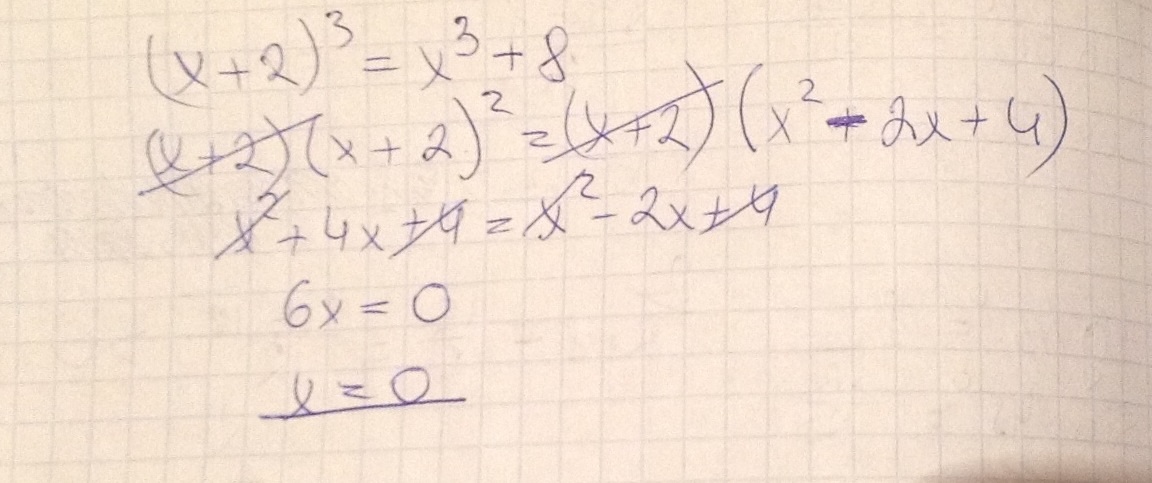 (x+2)³ = x³ + 8
(x+2)(x+2)² = (x+2)(x² - 2x + 4)
x² + 4x + 4 = x² - 2x + 4
6x = 0
x = 0